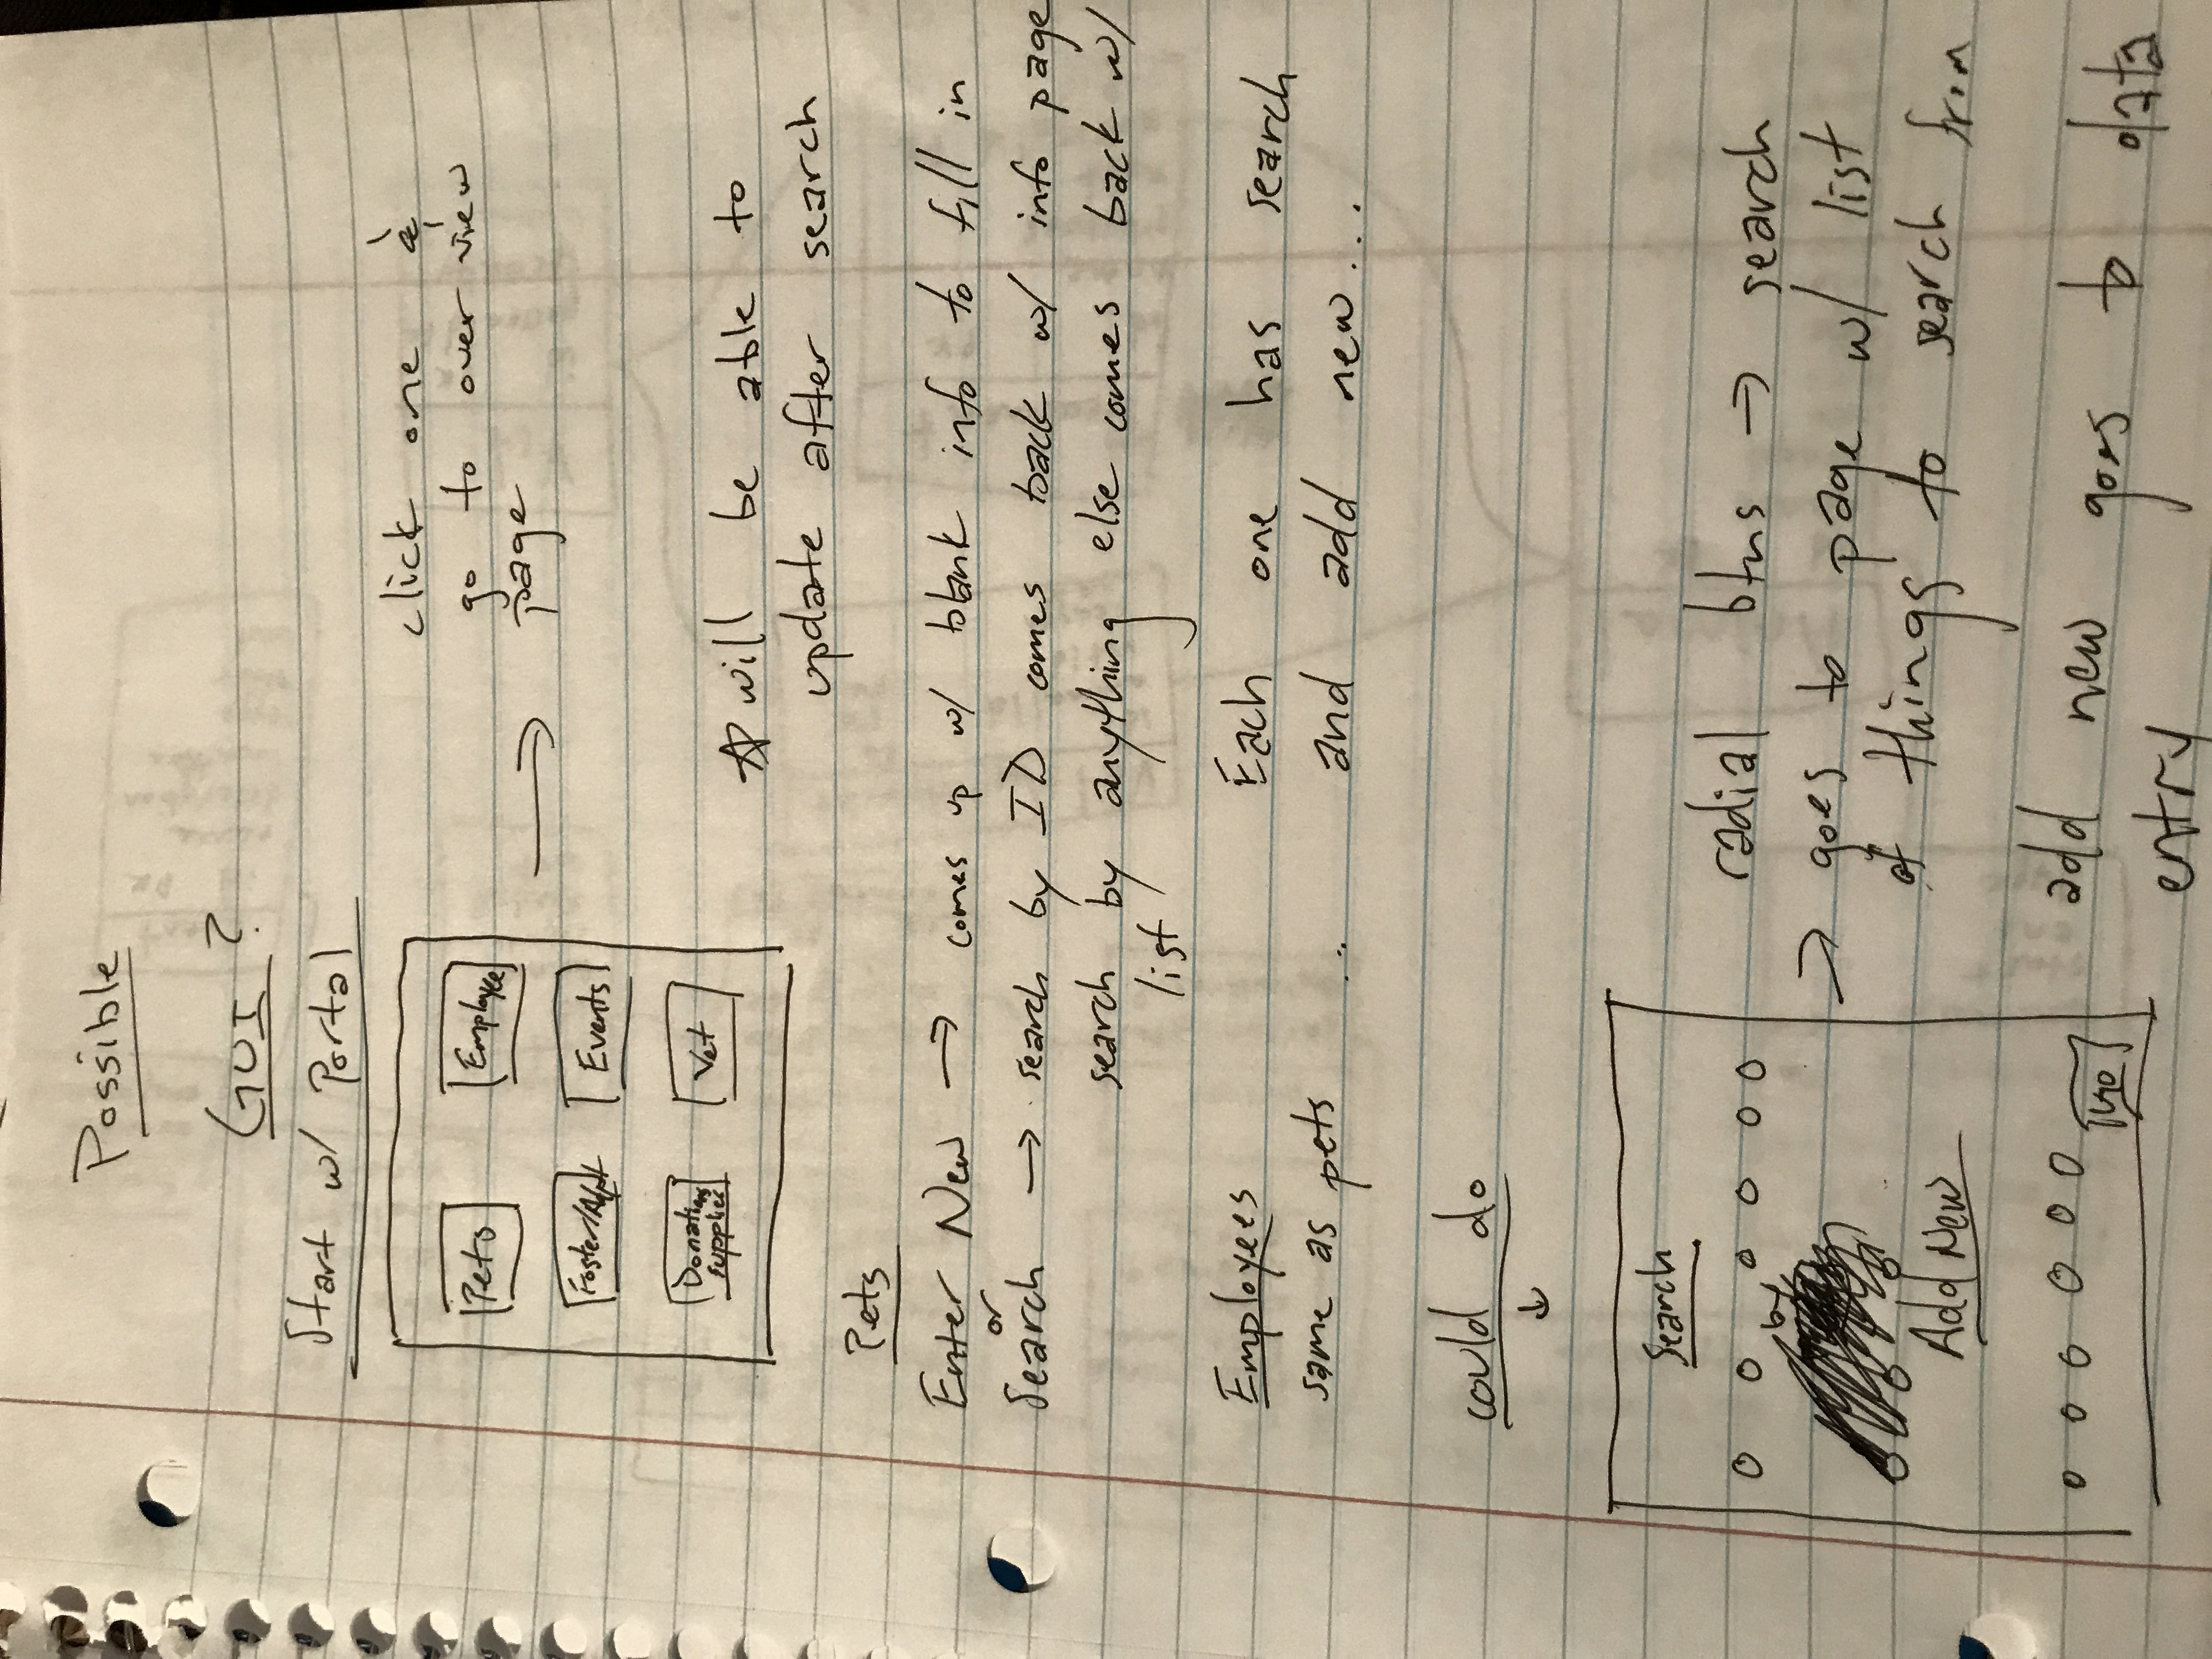 Possible
GUI ?
Start w/ Portal
Pets
Employee
Foster/Adpt
Events
Donations
supplies
Vet
click one &
go to over view
page
☆ will be able to
update after search
Pets
Enter New → comes up w/ blank info to fill in
or
Search → search by ID comes back w/ info page
search by anything else comes back w/
list
Employees
same as pets ..
Each one has search
and add new...
could do
↓
Search
by
Add New
go
radial btns → search
→ goes to page w/ list
of things to search from
add new goes to data
entry